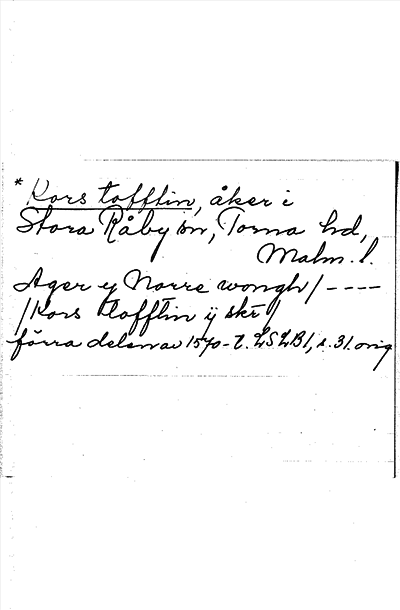 * Kors tofftin, åker i
Stora Råby sn, Torna hd,
Malm. l.
Ager y Norre wongh / ----
/ Kors tofftin ÿ skr /
förra delen av 1570-t. LSLB 1, s. 31. orig